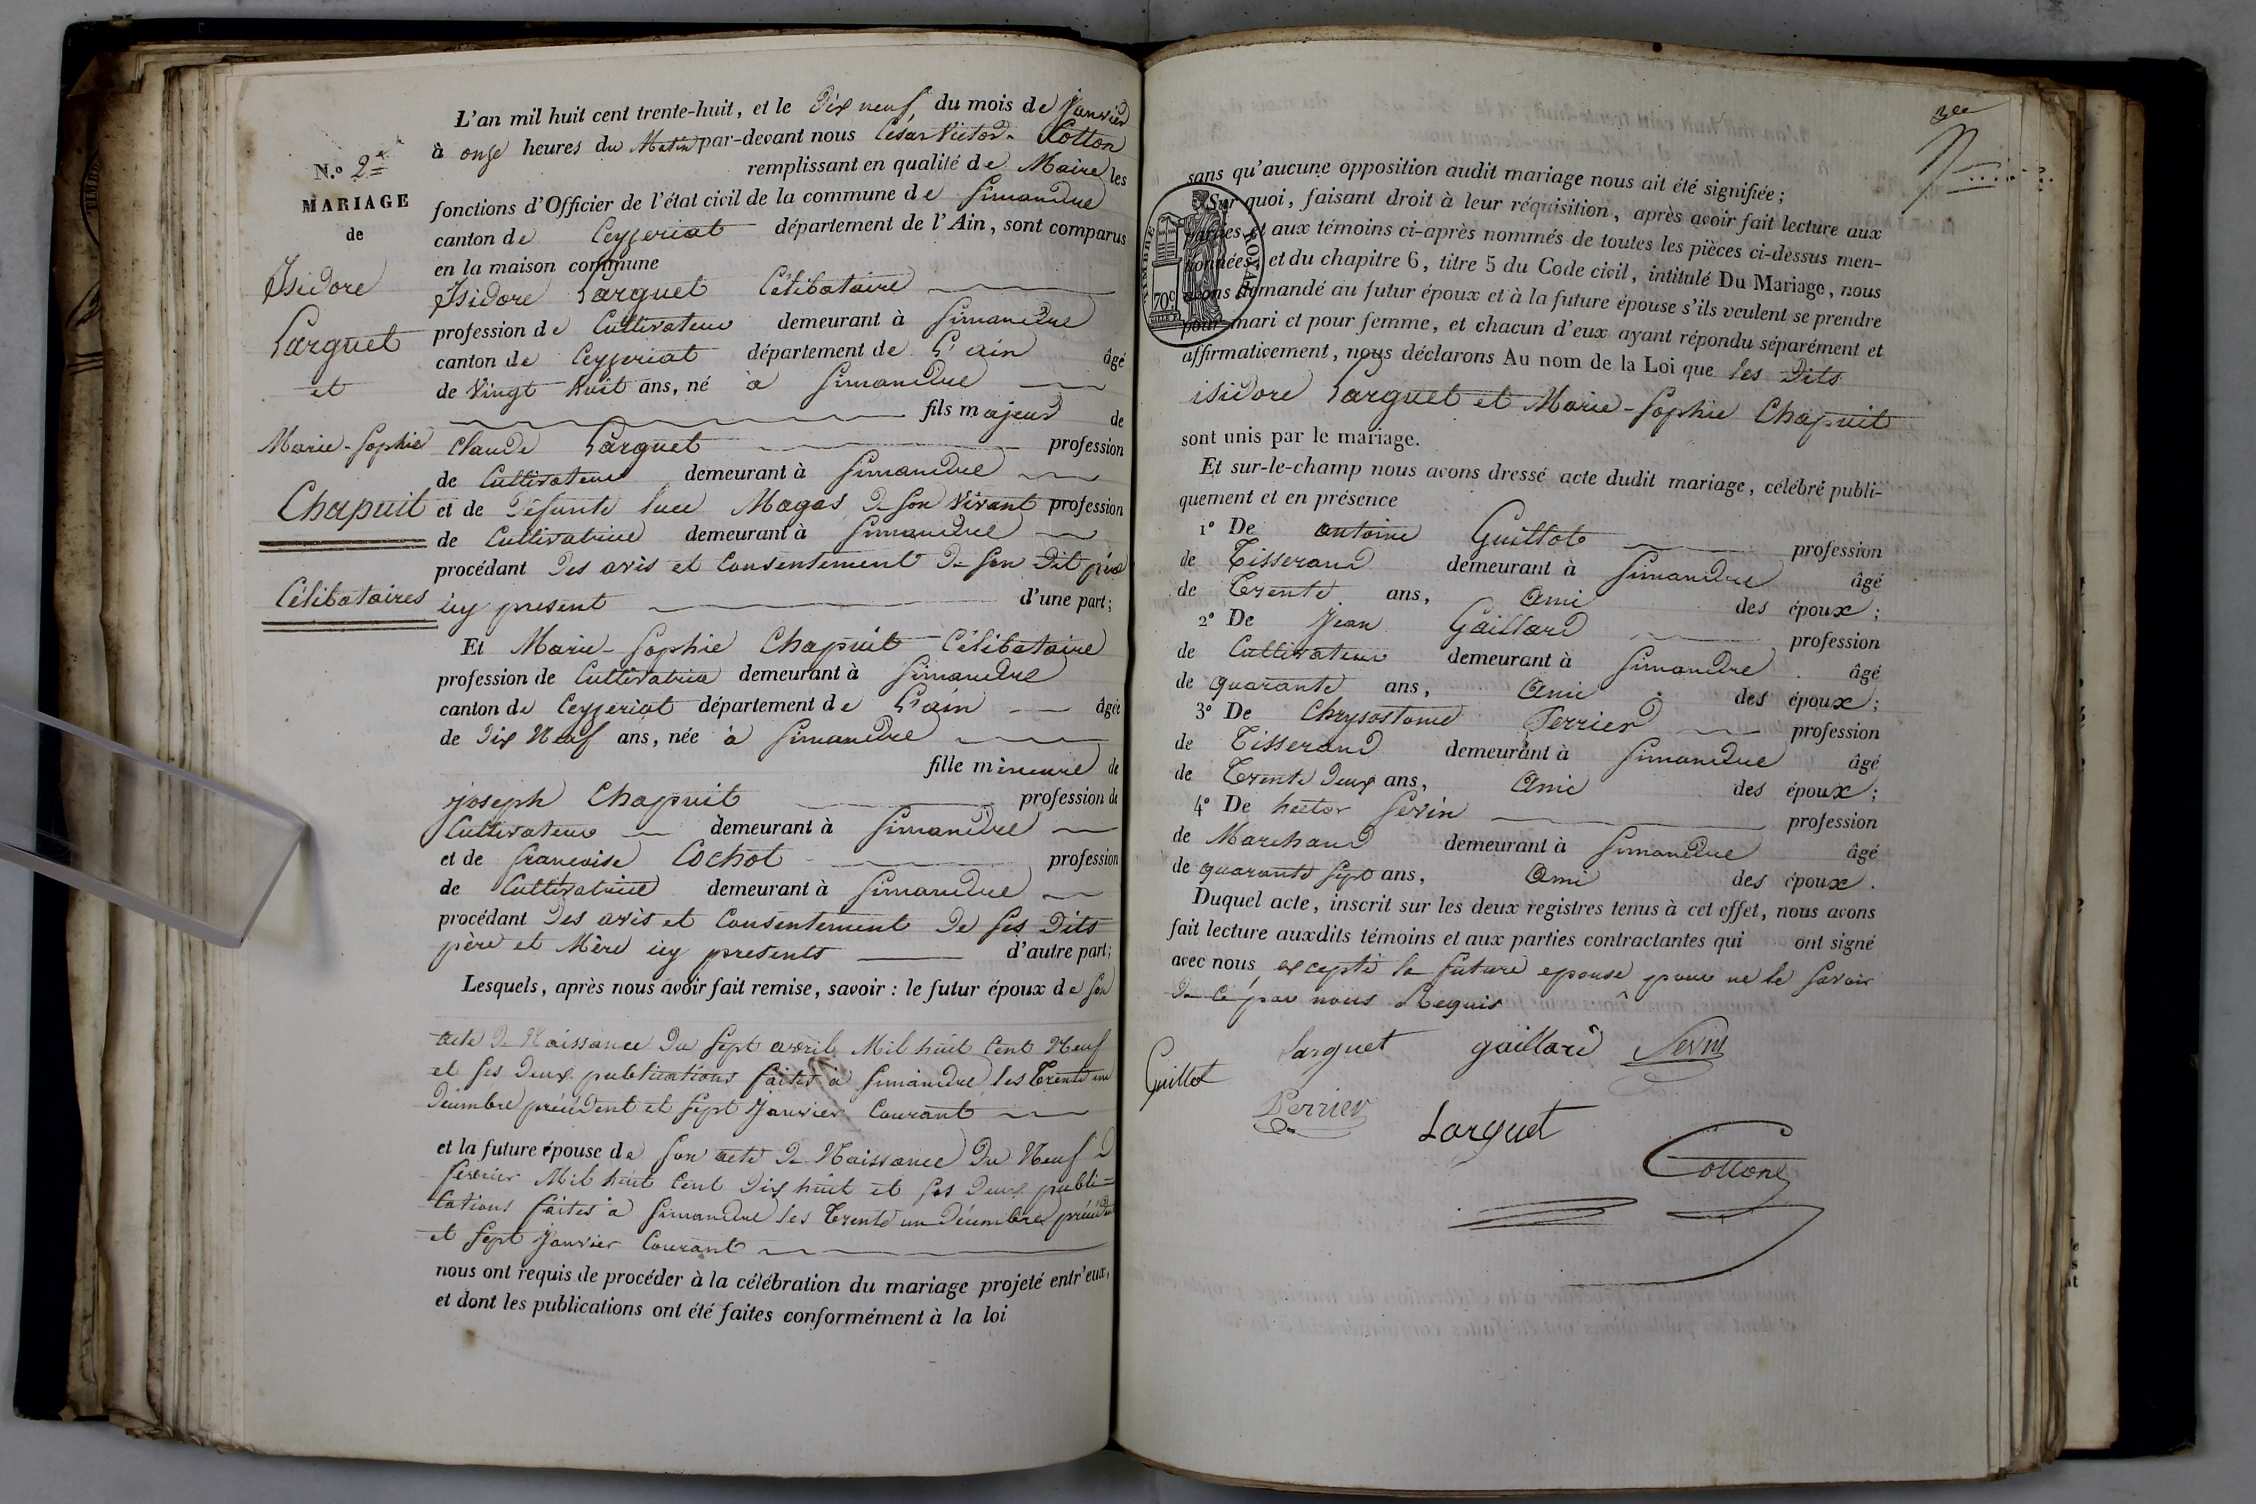 N.o 2e
MARIAGE
de
Isidore
Larguet
et
Marie-Sophie
Chapuit
Célibataires
L'an mil huit cent trente-huit, et le Dix neuf du mois de Janvier
à onze heures du Matin par-devant nous César Victor Cotton
remplissant en qualité de Maire les
fonctions d'Officier de l'état civil de la commune de Simandre
canton de Ceyzeriat département de l'Ain, sont comparus
en la maison commune
Isidore Larguet Célibataire
profession de Cultivateur demeurant à Simandre
canton de Ceyzeriat département de L'ain âgé
de Vingt huit ans, né à Simandre
fils majeur de
Claude Larguet profession
de Cultivateur demeurant à Simandre
et de Défunte Luce Magas De son Vivant profession
de Cultivatrice demeurant à Simandre
procédant Des avis et Consentement De son Dit père
icy present d'une part;
Et Marie-Sophie Chapuit Célibataire
profession de Cultivatrice demeurant à Simandre
canton de Ceyzeriat département de L'ain âgée
de Dix Neuf ans, née à Simandre
fille mineure de
joseph Chapuit profession de
Cultivateur demeurant à Simandre
et de francoise Cochot profession
de Cultivatrice demeurant à Simandre
procédant Des avis et Consentement De ses Dits
père et Mère icy presents d'autre part;
Lesquels, après nous avoir fait remise, savoir : le futur époux de son
acte De Naissance Du sept avril Mil huit Cent Neuf
et ses Deux publications faites à Simandre les Trente un
Décembre précédent et sept Janvier Courant
et la future épouse de son acte De Naissance Du Neuf
fevrier Mil huit Cent Dix huit et ses Deux publi-
cations faites à Simandre les Trente un Décembre précédent
et sept Janvier Courant
nous ont requis de procéder à la célébration du mariage projeté entr'eux,
et dont les publications ont été faites conformément à la loi
sans qu'aucune opposition audit mariage nous ait été signifiée;
Sur quoi, faisant droit à leur réquisition, après avoir fait lecture aux
parties et aux témoins ci-après nommés de toutes les pièces ci-dessus men-
tionnées, et du chapitre 6, titre 5 du Code civil, intitulé Du Mariage, nous
avons demandé au futur époux et à la future épouse s'ils veulent se prendre
pour mari et pour femme, et chacun d'eux ayant répondu séparément et
affirmativement, nous déclarons Au nom de la Loi que les Dits
isidore Larguet et Marie-Sophie Chapuit
sont unis par le mariage.
Et sur-le-champ nous avons dressé acte dudit mariage, célébré publi-
quement et en présence
1° De antoine Guillot profession
de Tisserand demeurant à Simandre âgé
de Trente ans, Ami des époux;
2° De Jean Gaillard profession
de Cultivateur demeurant à Simandre âgé
de quarante ans, Ami des époux;
3° De Chrysostome Perrier profession
de Tisserand demeurant à Simandre âgé
de Trente Deux ans, Ami des époux;
4° De hector Sevin profession
de Marchand demeurant à Simandre âgé
de quarante sept ans, Ami des époux.
Duquel acte, inscrit sur les deux registres tenus à cet effet, nous avons
fait lecture auxdits témoins et aux parties contractantes qui ont signé
avec nous, excepté la future epouse pour ne le savoir
De Ce par nous Requis
Larguet gaillard Sevin
Guillot
Perrier
Larguet
Cotton
TIMBRE ROYAL
70c